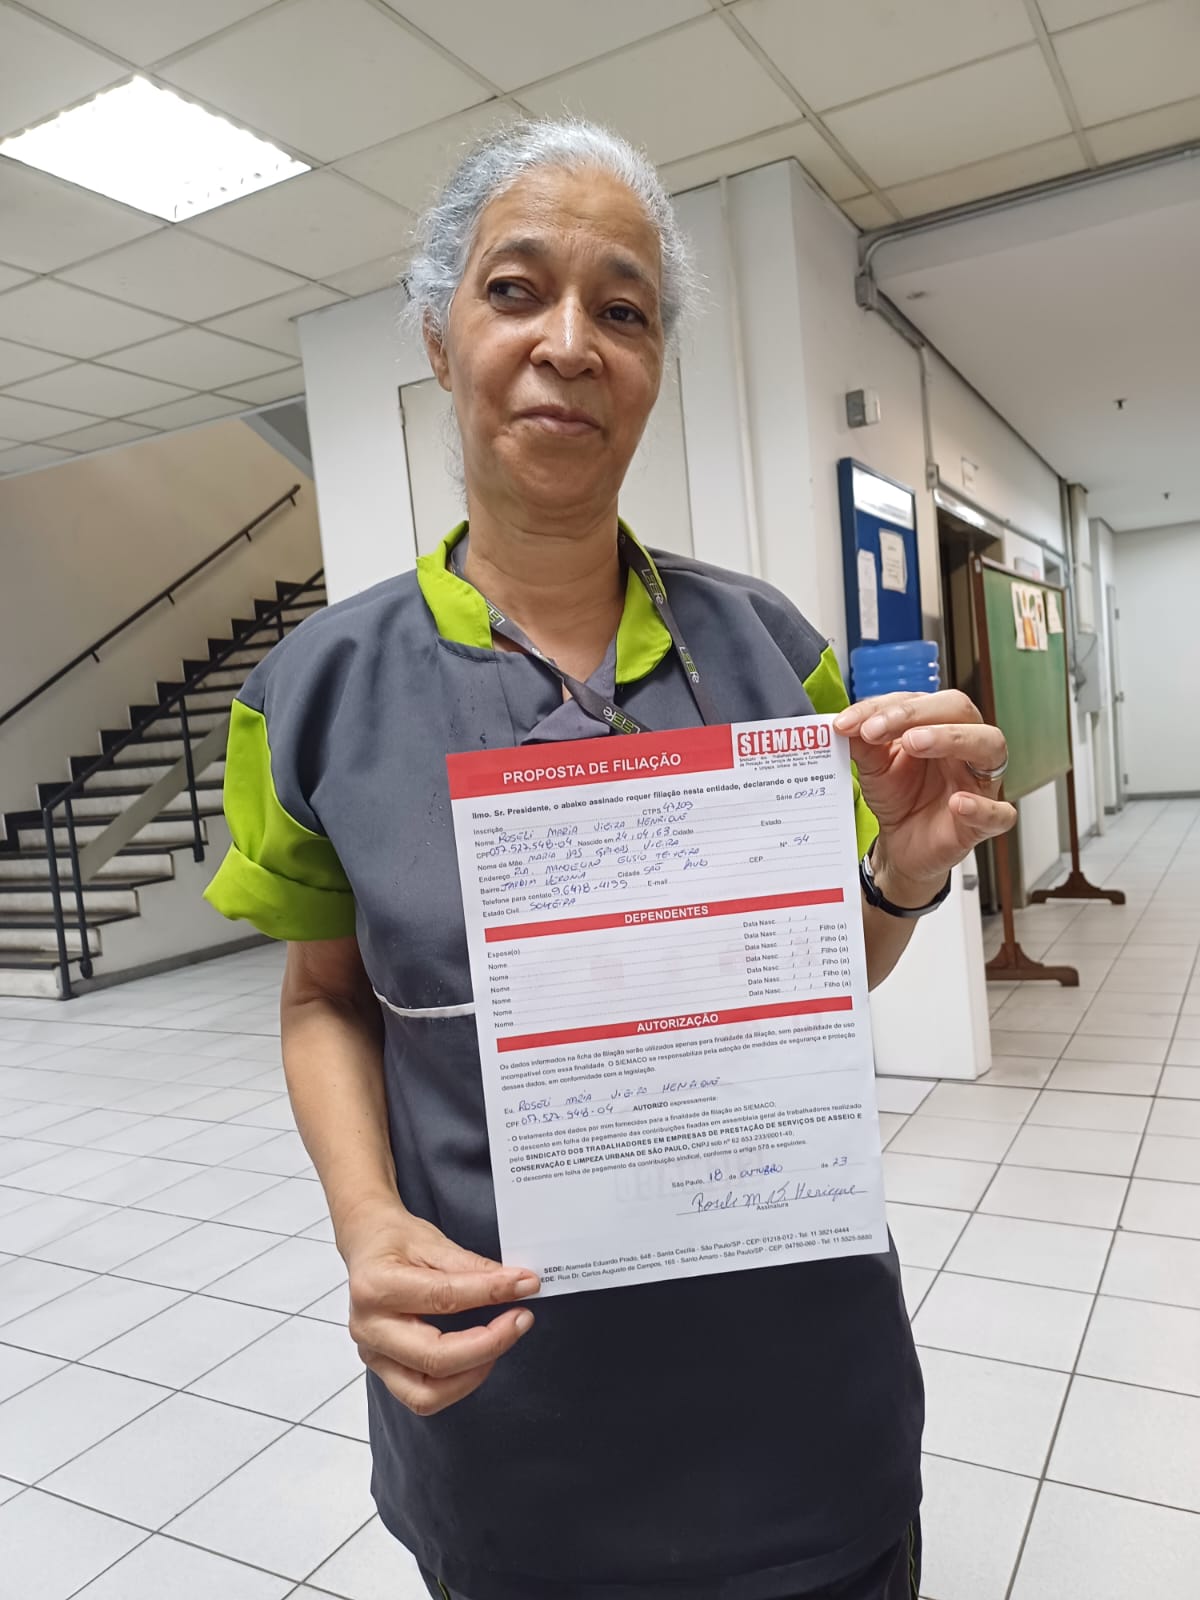 PROPOSTA DE FILIAÇÃO
SIEMACO
Sindicato dos Trabalhadores em Empresas
de Prestação de Serviços de Asseio e Conservação
e Limpeza Urbana de São Paulo
Ilmo. Sr. Presidente, o abaixo assinado requer filiação nesta entidade, declarando o que segue:
Inscrição CTPS 47209 Série 00213
Nome ROSELI MARIA VIEIRA HENRIQUE
CPF 057.527.548-04 Nascido em 24,04,63 Cidade Estado
Nome da Mãe MARIA DAS VIEIRA
Endereço RUA. TEIXEIRA Nº 54
Bairro JARDIM VERONIA Cidade SÃO PAULO CEP
Telefone para contato 9.6478-4199 E-mail
Estado Civil SOLTEIRA
DEPENDENTES
Esposa(o) Data Nasc / /
Nome Data Nasc / / Filho (a)
Nome Data Nasc / / Filho (a)
Nome Data Nasc / / Filho (a)
Nome Data Nasc / / Filho (a)
Nome Data Nasc / / Filho (a)
Nome Data Nasc / / Filho (a)
AUTORIZAÇÃO
Os dados informados na ficha de filiação serão utilizados apenas para finalidade da filiação, sem possibilidade de uso
incompatível com essa finalidade. O SIEMACO se responsabiliza pela adoção de medidas de segurança e proteção
desses dados, em conformidade com a legislação.
Eu, ROSELI MARIA VIEIRA HENRIQUE
CPF 057.527.948-04 AUTORIZO expressamente:
- O tratamento dos dados por mim fornecidos para a finalidade de filiação ao SIEMACO;
- O desconto em folha de pagamento das contribuições fixadas em assembleia geral de trabalhadores realizado
pelo SINDICATO DOS TRABALHADORES EM EMPRESAS DE PRESTAÇÃO DE SERVIÇOS DE ASSEIO E
CONSERVAÇÃO E LIMPEZA URBANA DE SÃO PAULO, CNPJ sob nº 62.653.233/0001-40,
- O desconto em folha de pagamento da contribuição sindical, conforme o artigo 578 e seguintes.
São Paulo, 18 de OUTUBRO de 23
Roseli M. V. Henrique
Assinatura
SEDE: Alameda Eduardo Prado, 648 - Santa Cecília - São Paulo/SP - CEP: 01218-012 - Tel: 11 3821-6444
EDE: Rua Dr. Carlos Augusto de Campos, 165 - Santo Amaro - São Paulo/SP - CEP: 04750-060 - Tel: 11 5525-5880